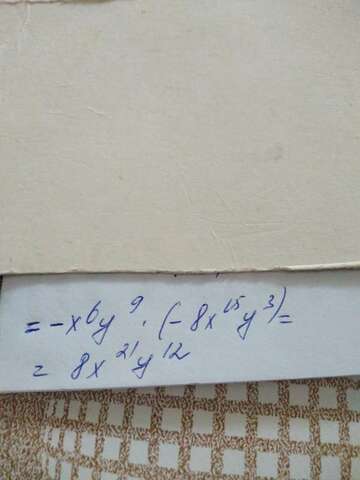 = -x⁶y⁹ · (-8x¹⁵y³) =
= 8x²¹y¹²